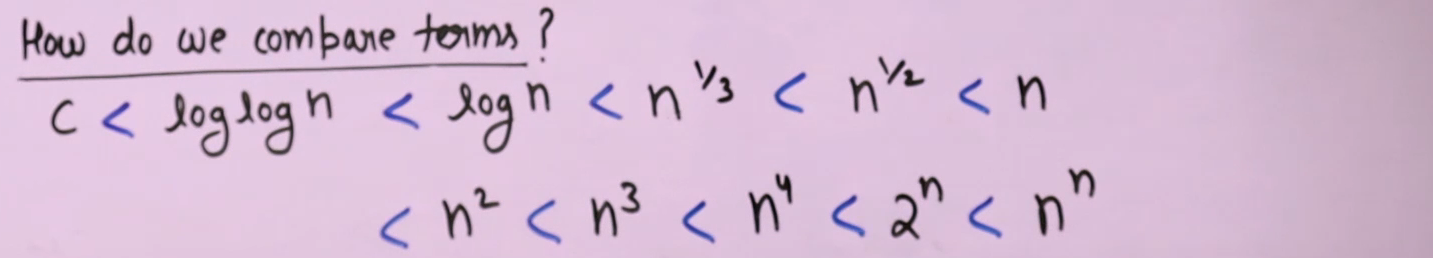 How do we compare terms ?
C < log log n < log n < n^1/3 < n^1/2 < n
< n^2 < n^3 < n^4 < 2^n < n^n